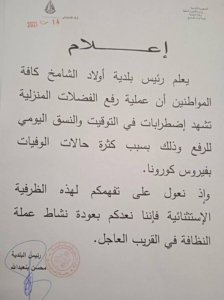 إعـــلام
يعلم رئيس بلدية أولاد الشامخ كافة
المواطنين أن عملية رفع الفضلات المنزلية
تشهد إضطرابات في التوقيت والنسق اليومي
للرفع وذلك بسبب كثرة حالات الوفيات
بفيروس كورونا.
وإذ نعول على تفهمكم لهذه الظرفية
الإستثنائية فإننا نعدكم بعودة نشاط عملة
النظافة في القريب العاجل.
رئيس البلدية
محسن بنعبدالله